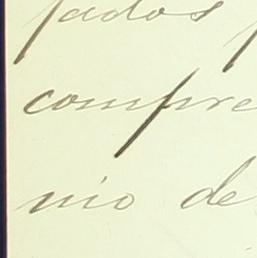 pados
compre
nio de